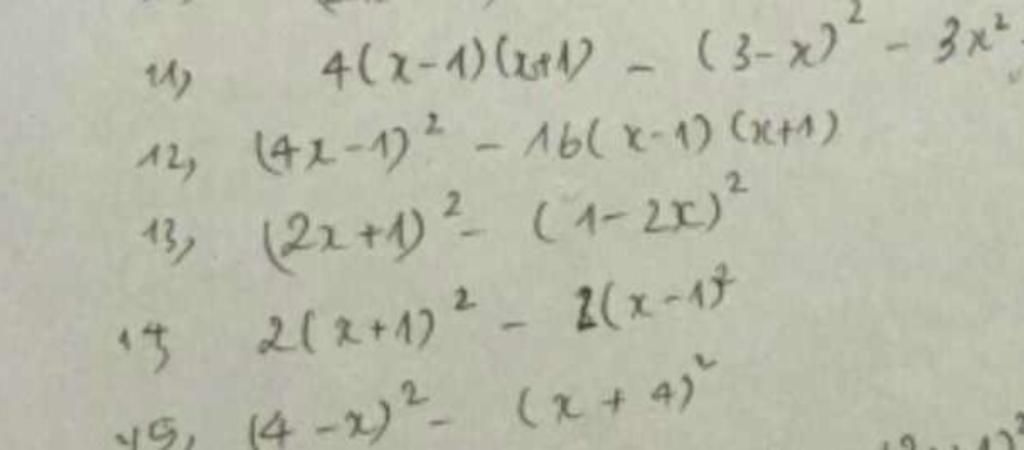 11, 4(x-1)(x+1) - (3-x)² - 3x²
12, (4x-1)² - 16(x-1)(x+1)
13, (2x+1)² - (1-2x)²
14, 2(x+1)² - 2(x-1)²
15, (4-x)² - (x+4)²